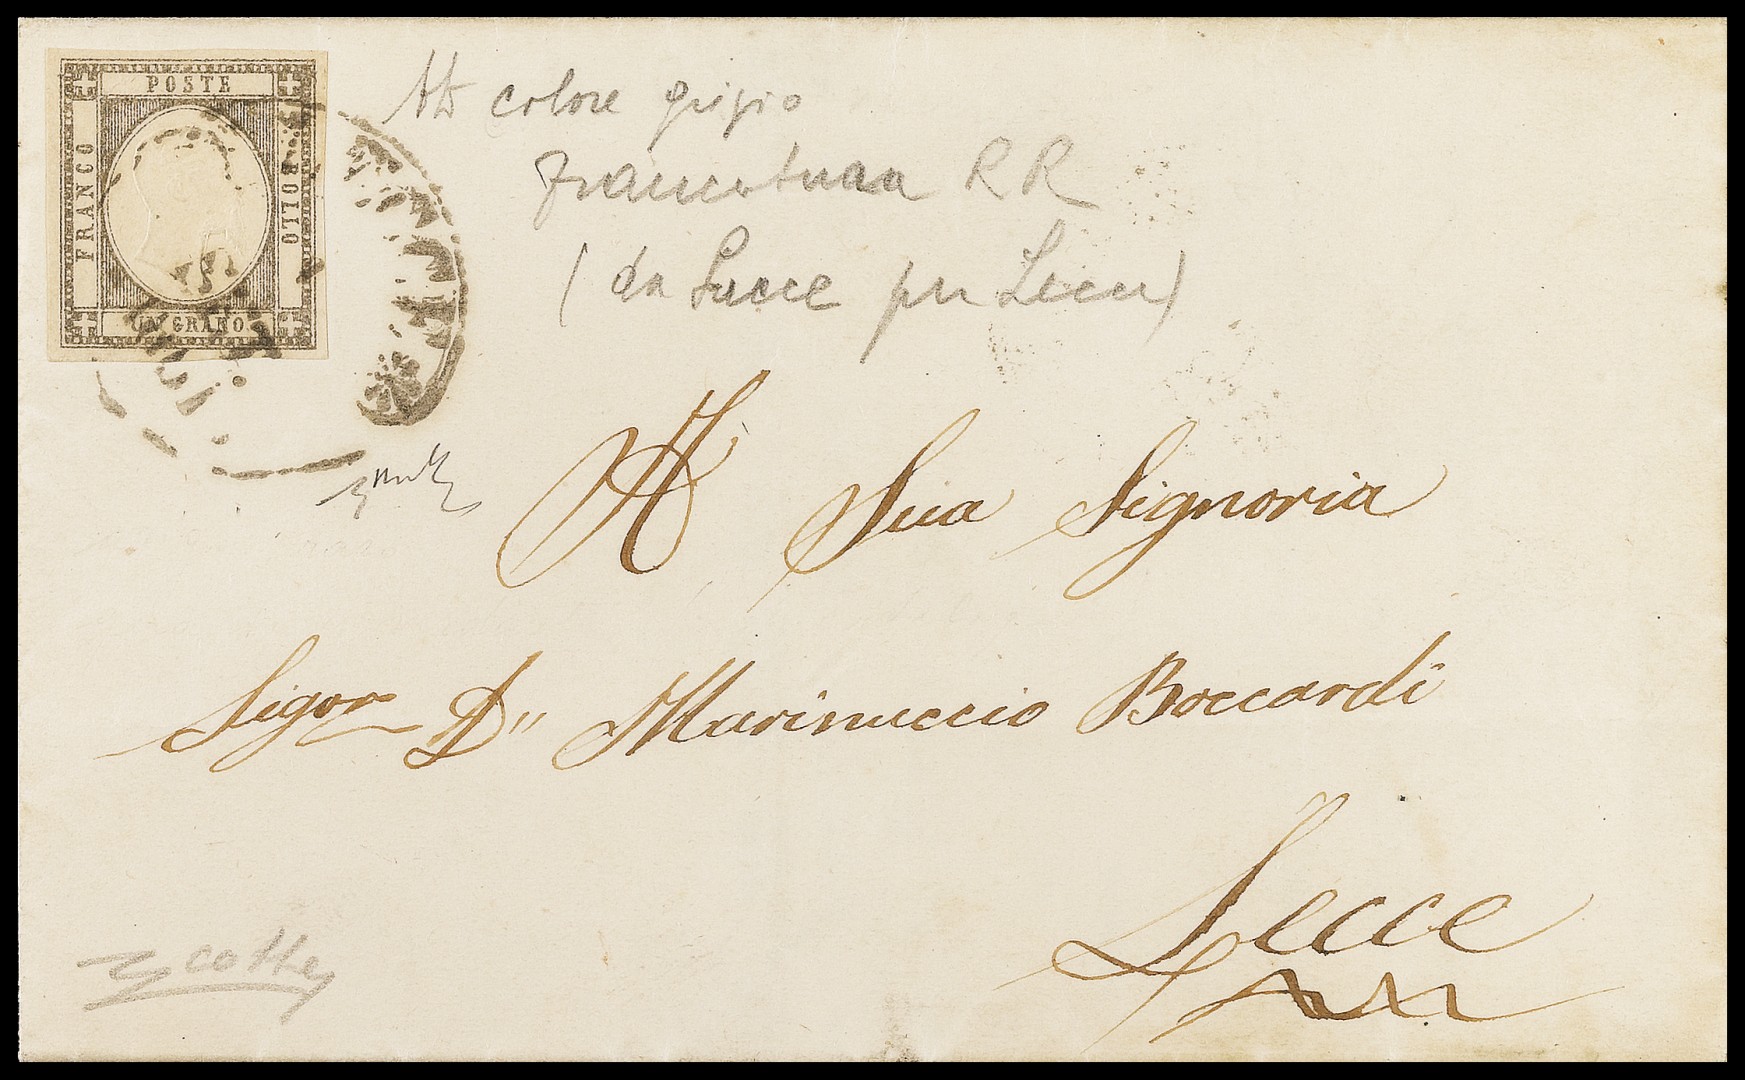 POSTE
FRANCO
BOLLO
UN GRANO
colore grigio
Francatura RR
(da Lecce per Lecce)
A Sua Signoria
Sigor D" Marinuccio Boccardi
Lecce